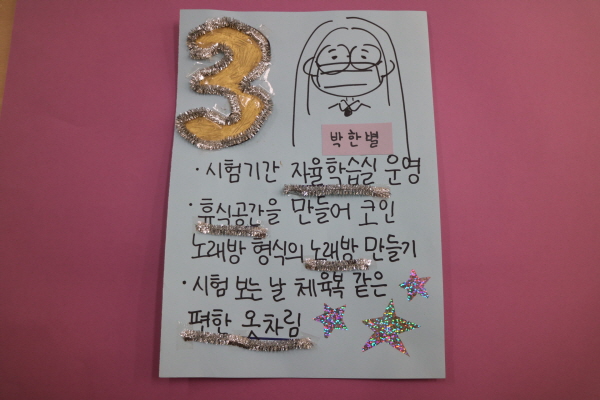 3
박한별
· 시험기간 자율학습실 운영
· 휴식공간을 만들어 코인
노래방 형식의 노래방 만들기
· 시험 보는 날 체육복 같은
편한 옷차림